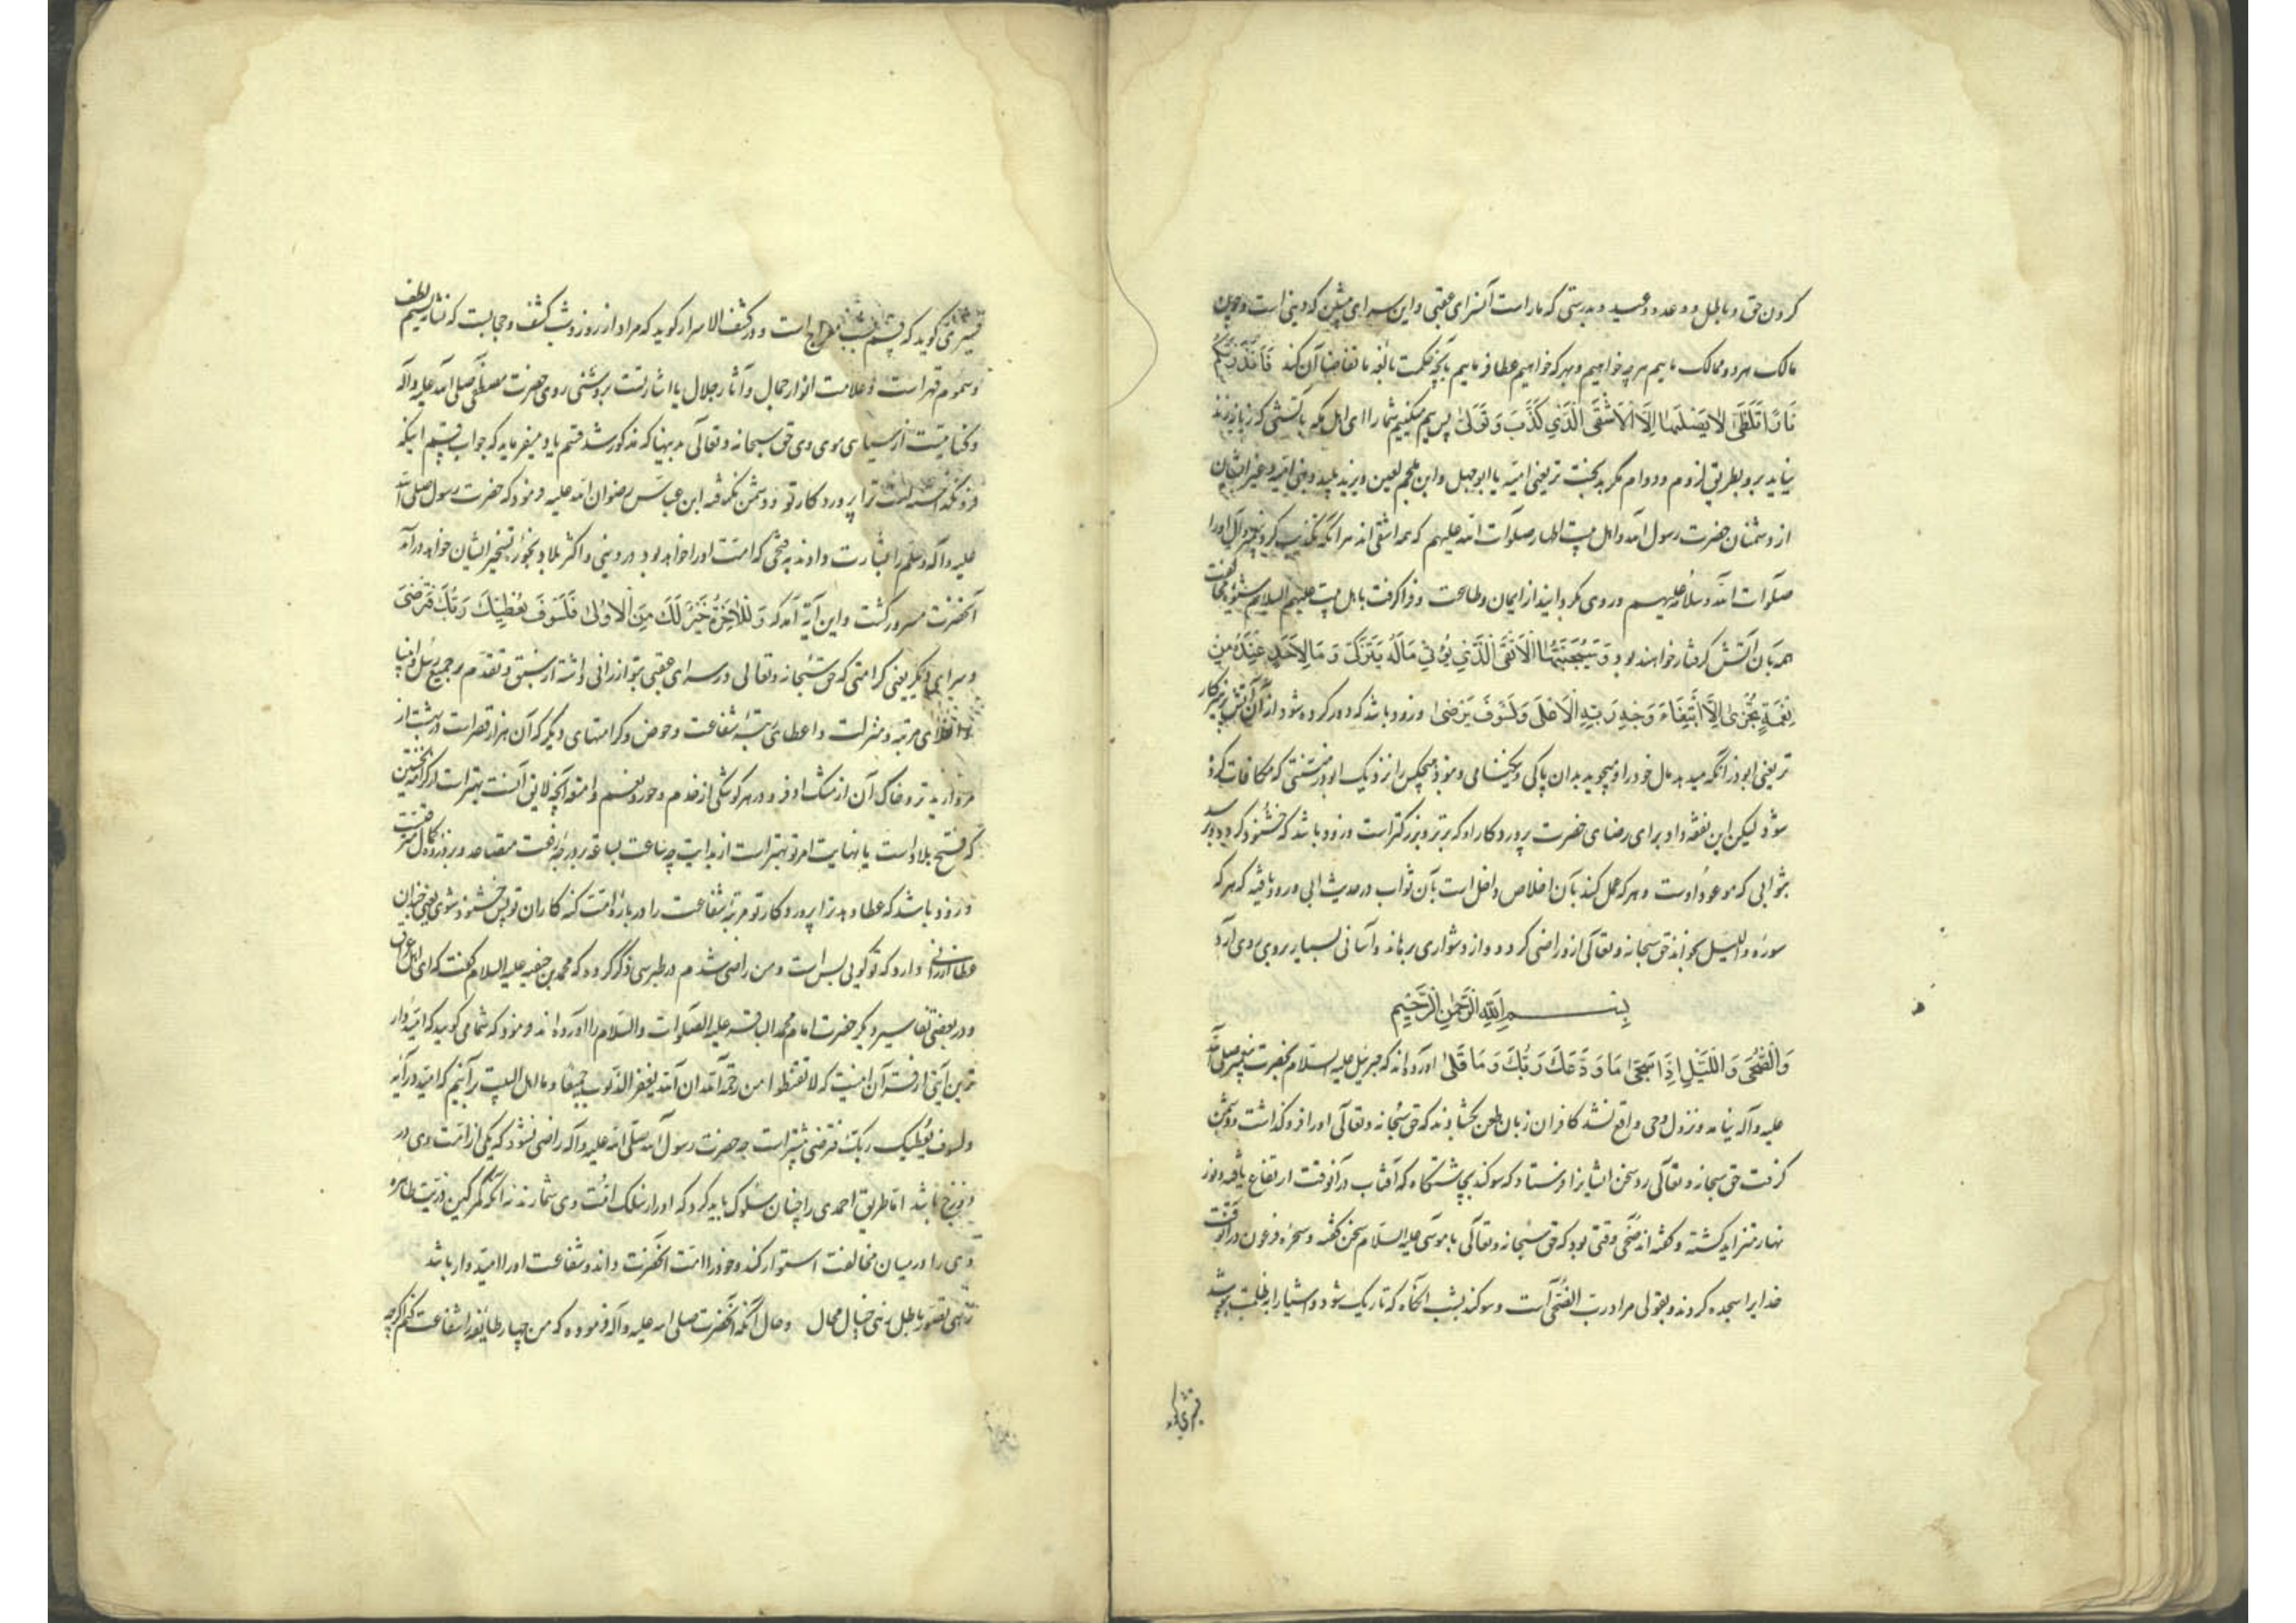 کردن حق و باطل و وعد و وعید و بدرستی که ماراست آنسرای عقبی و این سرای پیشین که دنیی است و چون
مالک هر دو ممالک ماییم هر چه خواهیم و بهر که خواهیم عطا فرماییم بآنچه حکمت بالغه ما تقاضا آن کند فَاَنْذَرْتُکُمْ
نَارًا تَلَظّٰی لَا یَصْلٰیهَا اِلَّا الْاَشْقَی الَّذِی کَذَّبَ وَ تَوَلّٰی پس بیم میکنیم شما را ای اهل مکه بآتشی که زبانه زند
نیاید برو بطریق لزوم و دوام مگر بدبخت تر یعنی امیه یا ابو جهل و ابن ملجم لعین و یزید پلید و بنی امیه و غیر ایشان
از دشمنان حضرت رسول الله و اهل بیت اطهار صلوات الله علیهم که همه اشقی اند هر آنکه تکذیب کرد پیغمبر و آل او را
صلوات الله و سلامه علیهم و روی بگردانید از ایمان و طاعت و فرا گرفت با اهل بیت علیهم السلام شیوه مخالفت
هم بآن آتش گرفتار خواهند بود وَ سَیُجَنَّبُهَا الْاَتْقَی الَّذِی یُؤْتِی مَالَهُ یَتَزَکّٰی وَ مَا لِاَحَدٍ عِنْدَهُ مِنْ
نِعْمَةٍ تُجْزٰی اِلَّا ابْتِغَاءَ وَجْهِ رَبِّهِ الْاَعْلٰی وَ لَسَوْفَ یَرْضٰی و زود باشد که دور کرده شود از آن آتش پرهیزکار
تر یعنی ابوذر آنکه میدهد مال خود را و میجوید بدان پاکی و نیکنامی و نبود هیچکس را نزدیک ابوذر منتی که مکافات کرده
شود لیکن این نفقه داد برای رضای حضرت پروردکار او که برتر و بزرکتر است و زود باشد که خشنود کردد و برسد
بثوابی که موعود اوست و هر که عمل کند بآن اخلاص داخل است بآن ثواب در حدیث ابی ورود یافته که هر که
سوره واللیل بخواند حق سبحانه و تعالی ازو راضی کردد و از دشواری برهاند و آسانی بسیار بروی روی آرد
بِسْمِ اللهِ الرَّحْمٰنِ الرَّحِیمِ
وَالضُّحٰی وَ اللَّیْلِ اِذَا سَجٰی مَا وَدَّعَکَ رَبُّکَ وَ مَا قَلٰی آورده اند که جبرئیل علیه السلام بحضرت پیغمبر صلی الله
علیه و آله نیامد و نزول وحی واقع نشد کافران زبان طعن بکشادند که حق سبحانه و تعالی او را فرو کذاشت و دشمن
کرفت حق سبحانه و تعالی رد سخن ایشانرا فرستاد که سوکند بچاشتگاه که آفتاب در آنوقت ارتفاع یافته و نور
نهار متزاید کشته و کفته اند ضحی وقتی بود که حق سبحانه و تعالی با موسی علیه السلام سخن کفته و سحره فرعون در آنوقت
خدایرا سجده کردند و بقولی مراد رب الضحی است و سوکند بشب آنگاه که تاریک شود و اشیا را بظلمت بپوشد
قشیری کوید
قشیری کوید که قسم بشب معراج است و در کشف الاسرار کوید که مراد از روز و شب کشف و حجابست که نشان نسیم لطف
و سموم قهر است و علامت انوار جمال و آثار جلال یا اشارتست بروشنی روی حضرت مصطفی صلی الله علیه و آله
و کنایتست از سیاهی موی وی حق سبحانه و تعالی بدینها که مذکور شد قسم یاد میفرماید که جواب قسم اینکه
فرو نکذاشته است ترا پروردکار تو و دشمن نکرفته ابن عباس رضوان الله علیه فرمود که حضرت رسول صلی الله
علیه و آله و سلم را بشارت دادند بفتحی که امت او را خواهد بود در دنیی و اکثر بلاد بحوزه تسخیر ایشان خواهد درآمد
آنحضرت مسرور کشت و این آیه آمد که وَ لَلْاٰخِرَةُ خَیْرٌ لَکَ مِنَ الْاُولٰی فَلَسَوْفَ یُعْطِیکَ رَبُّکَ فَتَرْضٰی
و سرای دیکر یعنی کرامتی که حق سبحانه و تعالی در سرای عقبی بتو ارزانی داشته از سبق و تقدم بر جمیع رسل و انبیا
و اعلای مرتبه و منزلت و اعطای رتبه شفاعت و حوض و کرامتهای دیکر که آن هزار قصر است در بهشت از
مروارید تر و خاک آن از مشک اذفر و در هر کوشکی از خدم و حور و نعم و امتعه آنچه لایق آنست بهتر است از کرامت نخستین
که فتح بلاد است یا نهایت امر تو بهتر است از بدایت چه ساعت بساعت بر درجه رفعت متصاعد و بر ذروه کمال مترقیست
و زود باشد که عطا دهد ترا پروردکار تو مرتبه شفاعت را درباره امت کنه کاران تو پس خشنود شوی یعنی چندان
عطا ارزانی دارد که تو کویی بس است و من راضی شدم در طبرسی ذکر کرده که محمد بن حنفیه علیه السلام کفت که ای اهل عراق
و در بعضی تفاسیر دیکر حضرت امام محمد الباقر علیه الصلوات والسلام را آورده اند فرمود که شما می کویید که امیدوار
ترین آیتی از قرآن اینست که لا تقنطوا من رحمة الله ان الله یغفر الذنوب جمیعا و ما اهل البیت برآنیم که امید در آیه
ولسوف یعطیک ربک فترضی بیشتر است چه حضرت رسول الله صلی الله علیه و آله راضی نشود که یکی از امت وی در
دوزخ باشد اما طریق احمدی را چنان سلوک باید کرد که او را در سلک امت وی شمارند نه آنکه کمر کین ذریت طاهره
وی را در میان مخالفت استوار کند و خود را امت آنحضرت داند و شفاعت او را امیدوار باشد
زهی تصور باطل زهی خیال محال و حال آنکه آنحضرت صلی الله علیه و آله فرموده که من چهار طایفه را شفاعت کنم اکرچه